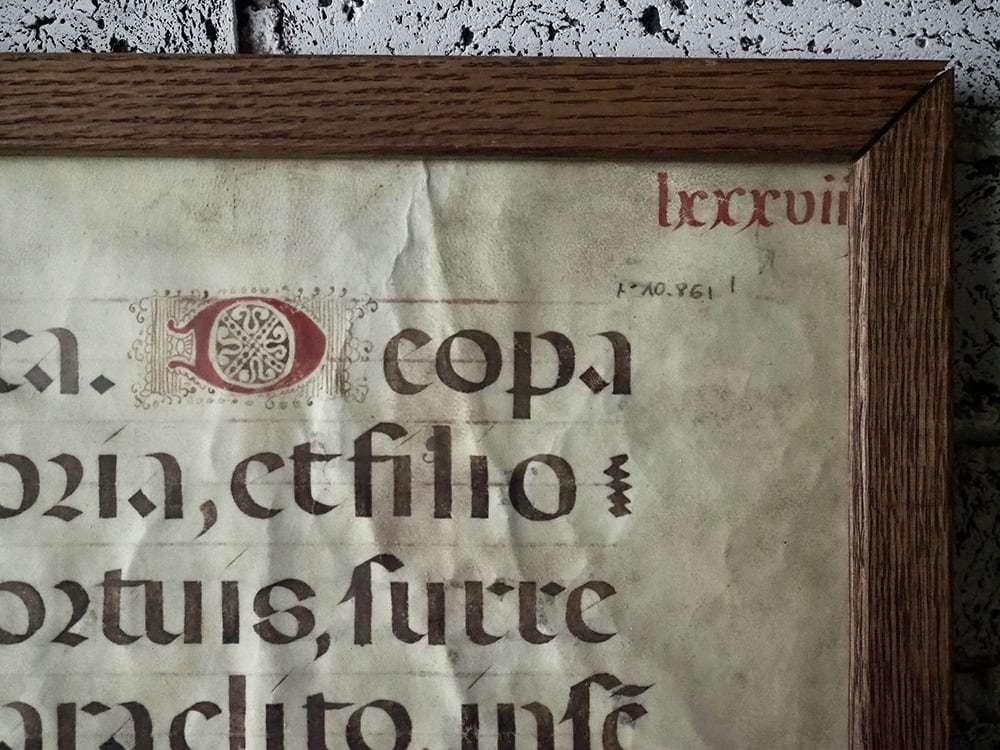 lxxxvii
10.861
ca. Deo pa
oria, et filio
ortuis, surre
araclito, in sē